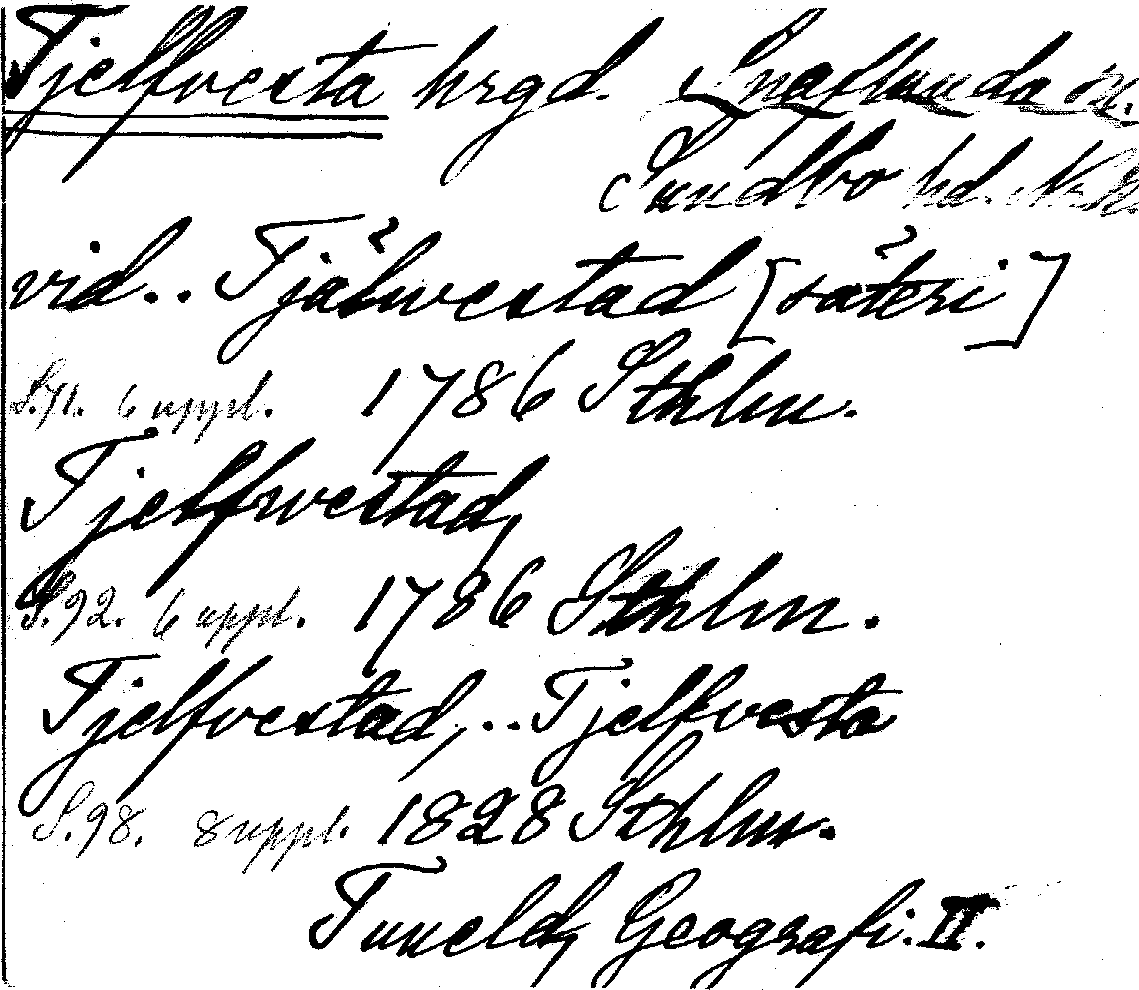 Tjelfvesta hrgd. Snaflunda sn.
Sundbo hd.
vid.. Tjälwestad [säteri]
S.71. 6 uppl. 1786 Sthlm.
Tjelfwestad,
S.92. 6 uppl. 1786 Sthlm.
Tjelfvestad, .. Tjelfvesta
S.98. 8 uppl. 1828 Sthlm.
Tuneld, Geografi. II.